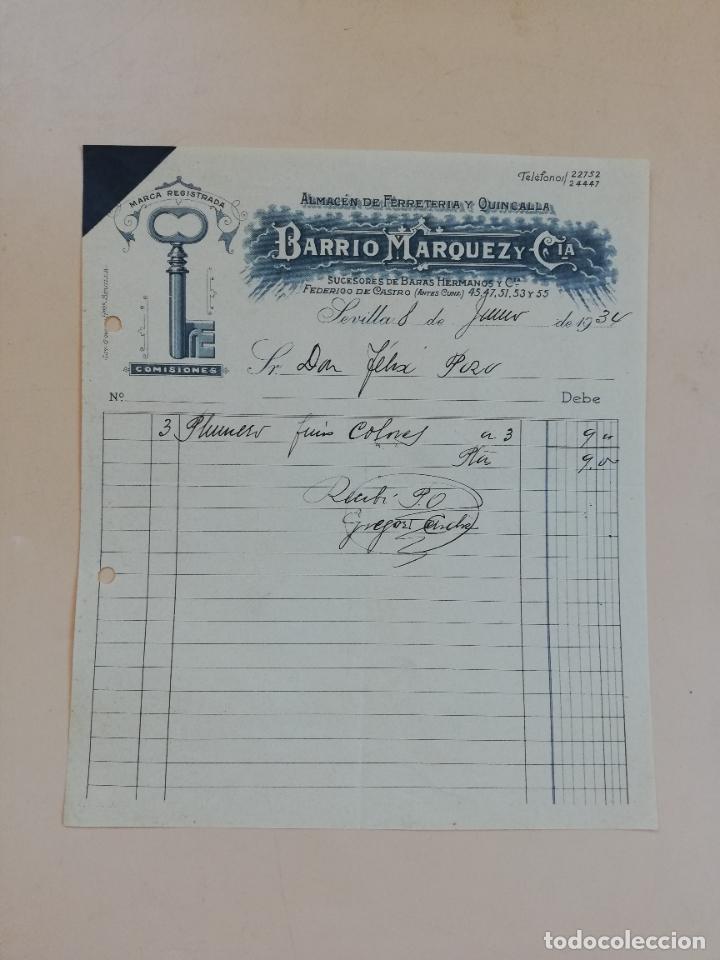 Telefonos 22752
24447
MARCA REGISTRADA
ALMACÉN DE FERRETERIA Y QUINCALLA
BARRIO MARQUEZ Y CIA
SUCESORES DE BARAS HERMANOS Y Cia
FEDERICO DE CASTRO (ANTES CUNA) 45, 47, 51, 53 Y 55
Sevilla 8 de Junio de 1934
COMISIONES
Sr. Don Félix Pozo
Nº Debe
3 Plumero finos Colores a 3 9
Pta 9,00
Recibí P.O
todocoleccion.net